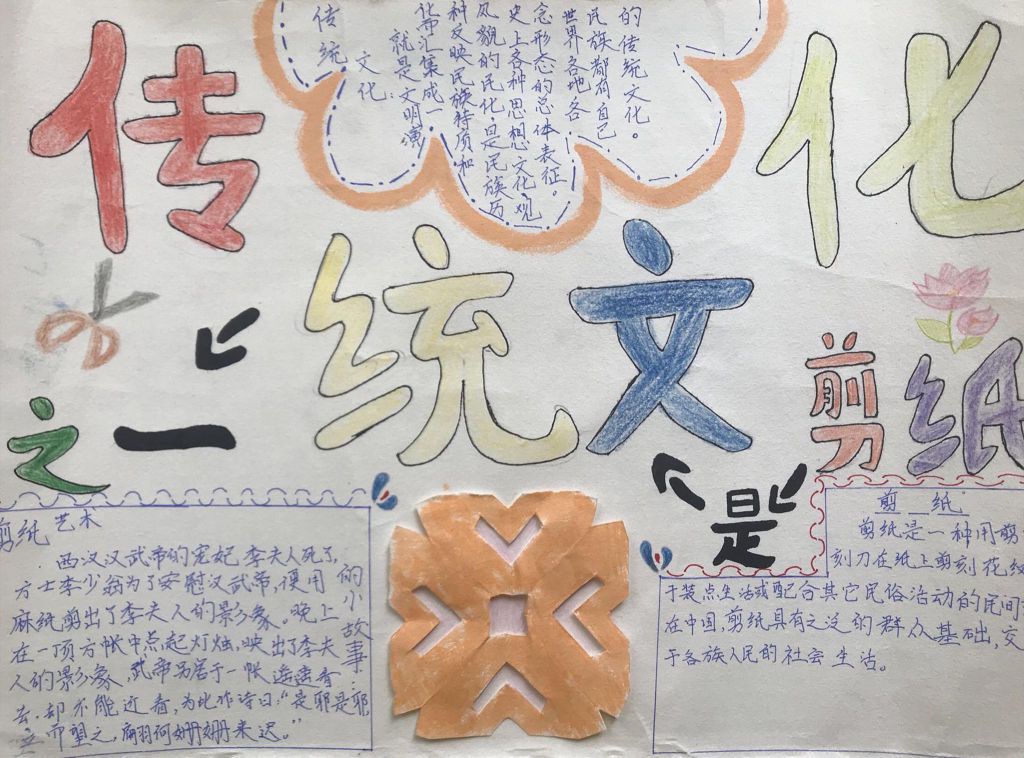 传
化
统文
传统
文化
就是文明演
化而汇集成一
种反映民族特质和
风貌的民化,是民族历
史上各种思想文化、观
念形态的总体表征。
世界各地各
民族都有自己
的传统文化。
之一
剪纸
是
剪纸艺术
的小故事
西汉汉武帝的宠妃李夫人死了,
方士李少翁为了安慰汉武帝,便用
麻纸剪出了李夫人的影象。晚上
在一顶方帐中点起灯烛,映出了李夫
人的影象,武帝另居于一帐遥遥看
去,却不能近看,为此作诗曰:“是耶是耶
立而望之,何姗姗来迟。”
剪纸
剪纸是一种用剪
刻刀在纸上剪刻花纹
于装点生活或配合其它民俗活动的民间
在中国,剪纸具有之泛的群众基础,交
于各族人民的社会生活。